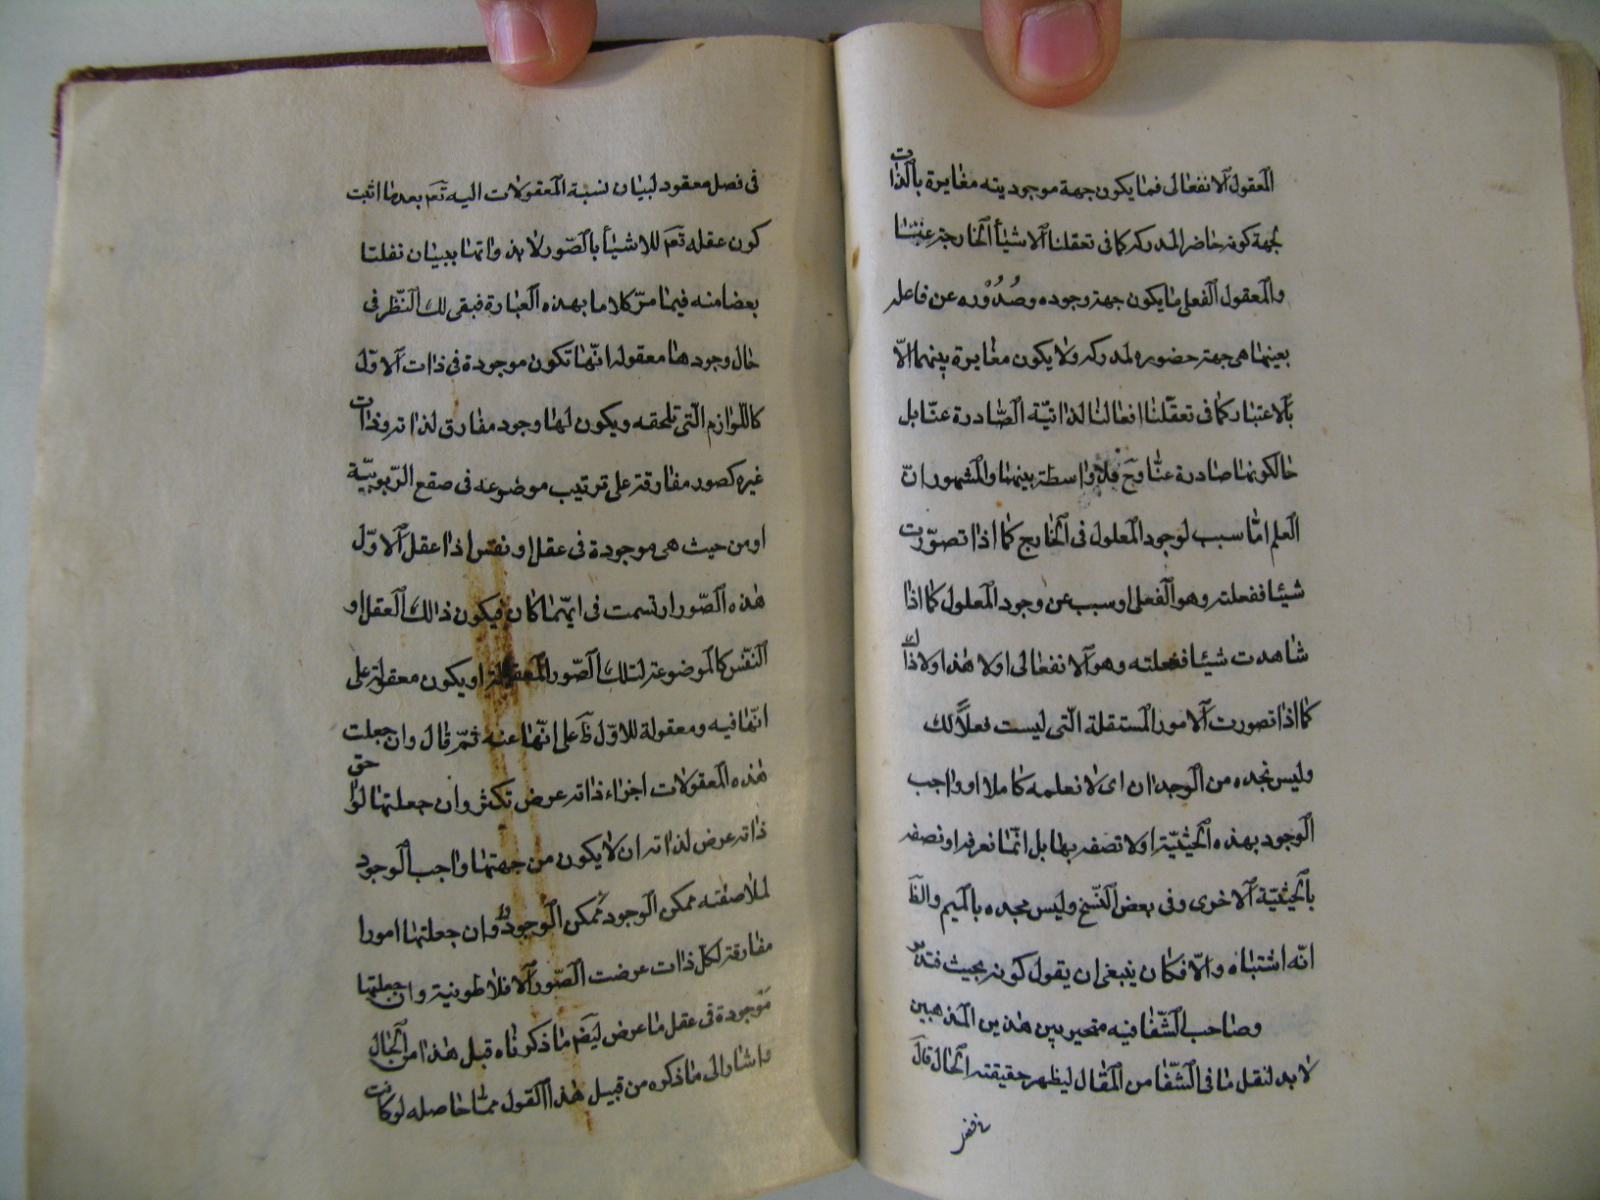 المعقول الانفعالى فما يكون جهة موجوديته مغايرة بالذات
لجهة كونه حاضرا لمدركه كما فى تعقلنا الاشيأ الخارجة عنّا
والمعقول الفعلى ما يكون جهة وجوده وصُدُوْره عن فاعله
بعينها هى جهة حضوره لمدركه ولا يكون مغايرة بينهما الّا
بالاعتبار كما فى تعقّلنا افعالنا لذاتيّة الصّادرة عنّا بل
حالكونها صادرة عنّا وح فلا واسطة بينهما والمشهور انّ
العلم امّا سبب لوجود المعلول فى الخارج كما اذا تصوّرت
شيئا ففعلته وهو الفعلى او سبب عن وجود المعلول كما اذا
شاهدت شيئا فعلته وهو الانفعالى اولا هذا ولا ذاك
كما اذا تصورت الامور المستقلة الّتى ليست فعلاً لك
وليس نجده من الوجدان اى لا نعلمه كاملا او واجب
الوجود بهذه الحيثيّة اولا تصفه بها بل انّما نعرفه او نصفه
بالحيثيّة الاخرى وفى بعض النّسخ وليس مجده بالميم والظَ
انّه اشتباه والّا فكان ينبغى ان يقول كونه بحيث فتدبّر
وصاحب الشّفا فيه متحير بين هذين المذهبين
لا بد لنقل ما فى الشّفا من المقال ليظهر حقيقته الحال قالَ
فى فصل معقود لبيان نسبة المعقولات اليه تَعَم بعد ما اثبت
كون عقله تَعَم للاشيأ بالصّور لا بذواتها ببيان نقلنا
بعضا منه فيما مرّ كلاما بهذه العبارة فبقى لك النّظر فى
حال وجودها معقولة انّها تكون موجودة فى ذات الاوّل
كاللّوازم الّتى تلحقه ويكون لها وجود مفارق لذاته وذات
غيره كصور مفارقة على ترتيب موضوعه فى صقع الرّبوبيّة
او من حيث هى موجودة فى عقل او نفس اذا عقل الاوّل
هذه الصّور ارتسمت فى ايّهما كان فيكون ذالك العقل او
النّفس كالموضوعة لتلك الصّور المعقولة او يكون معقولة على
انّها فيه ومعقولة للاوّل ظَ على انّها عنه ثمّ قال وان جعلت
هذه المعقولات اجزاء ذاته عرض تكثر وان جعلتها لواحق
ذاته عرض لذاته ان لا يكون من جهتها واجب الوجود
لملاصقته ممكن الوجود ممكن الوجود وان جعلتها امورا
مفارقة لكلّ ذات عرضت الصّور الافلاطونية وان جعلتها
موجودة فى عقل ما عرض ليضم ما ذكرناه قبل هذا من المحال
واشار الى ما ذكره من قبيل هذا القول ممّا حاصله لو كانت